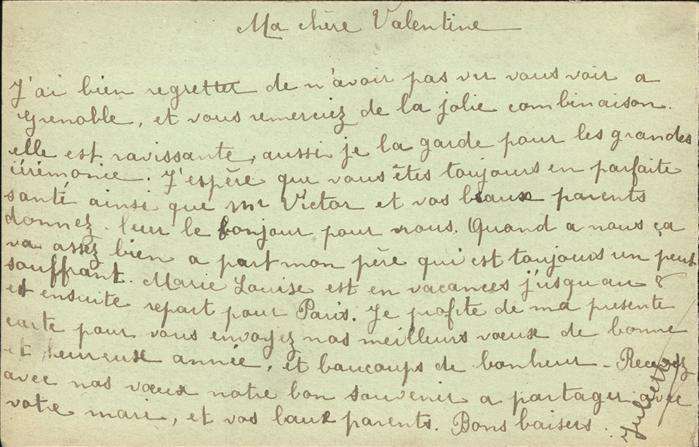 Ma chère Valentine
J'ai bien regretter de n'avoir pas vu vous voir a
Grenoble, et vous remerciez de la jolie combinaison.
elle est ravissante, aussi je la garde pour les grandes
cérémonie. J'espère que vous êtes toujours en parfaite
santé ainsi que Mr Victor et vos beaux parents
donnez-leur le bonjour pour nous. Quand a nous ça
va assez bien a part mon père qui est toujours un peut
souffrant. Marie Louise est en vacances jusqu'au 8
et ensuite repart pour Paris. Je profite de ma presente
carte pour vous envoyez nos meilleurs vœux de bonne
et heureuse année, et baucoups de bonheur - Recevez
avec nos vœux notre bon souvenir a partager avec
votre mari, et vos baux parents. Bons baisers.
Juliette